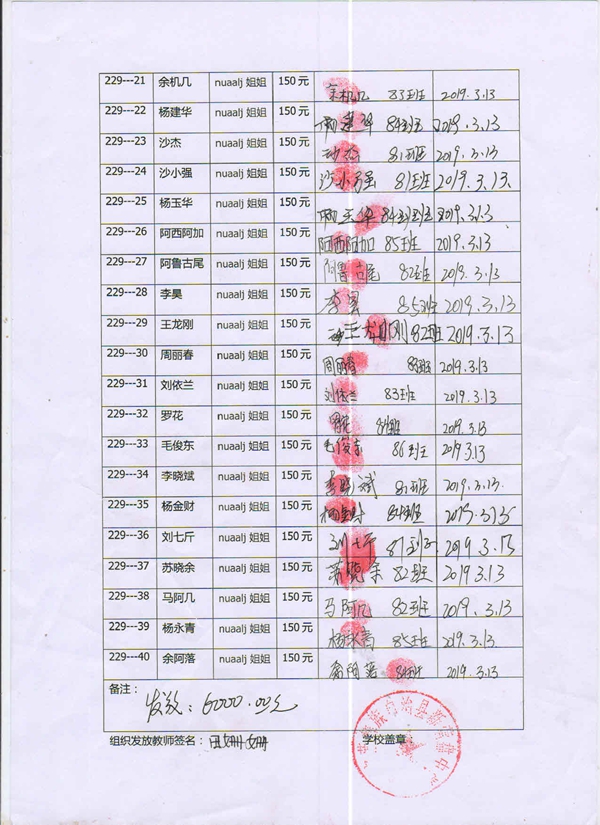 229---21 余机几 nuaalj 姐姐 150 元 余机几 83班 2019.3.13
229---22 杨建华 nuaalj 姐姐 150 元 杨建华 84班 2019.3.13
229---23 沙杰 nuaalj 姐姐 150 元 沙杰 81班 2019.3.13
229---24 沙小强 nuaalj 姐姐 150 元 沙小强 81班 2019.3.13.
229---25 杨玉华 nuaalj 姐姐 150 元 杨玉华 84班 2019.3.13
229---26 阿西阿加 nuaalj 姐姐 150 元 阿西阿加 85班 2019.3.13
229---27 阿鲁古尾 nuaalj 姐姐 150 元 阿鲁古尾 82班 2019.3.13
229---28 李昊 nuaalj 姐姐 150 元 李昊 85班 2019.3.13
229---29 王龙刚 nuaalj 姐姐 150 元 王龙刚 82班 2019.3.13
229---30 周丽春 nuaalj 姐姐 150 元 周丽春 2019.3.13
229---31 刘依兰 nuaalj 姐姐 150 元 刘依兰 83班 2019.3.13
229---32 罗花 nuaalj 姐姐 150 元 罗花 84班 2019.3.13
229---33 毛俊东 nuaalj 姐姐 150 元 毛俊东 86班 2019.3.13
229---34 李晓斌 nuaalj 姐姐 150 元 李晓斌 81班 2019.3.13.
229---35 杨金财 nuaalj 姐姐 150 元 杨金财 84班
229---36 刘七斤 nuaalj 姐姐 150 元 刘七斤 2019.3.13
229---37 苏晓余 nuaalj 姐姐 150 元 苏晓余 82班 2019.3.13
229---38 马阿几 nuaalj 姐姐 150 元 马阿几 82班 2019.3.13
229---39 杨永青 nuaalj 姐姐 150 元 杨永青 85班 2019.3.13
229---40 余阿落 nuaalj 姐姐 150 元 余阿落 84班 2019.3.13
备注：
发放：6000.00元
组织发放教师签名： 学校盖章：
族自治县